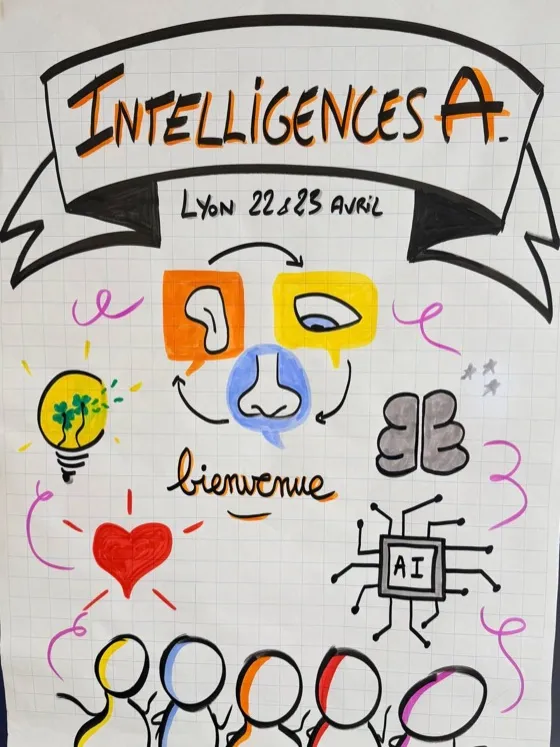 INTELLIGENCES A.
LYON 22 & 23 AVRIL
bienvenue
AI